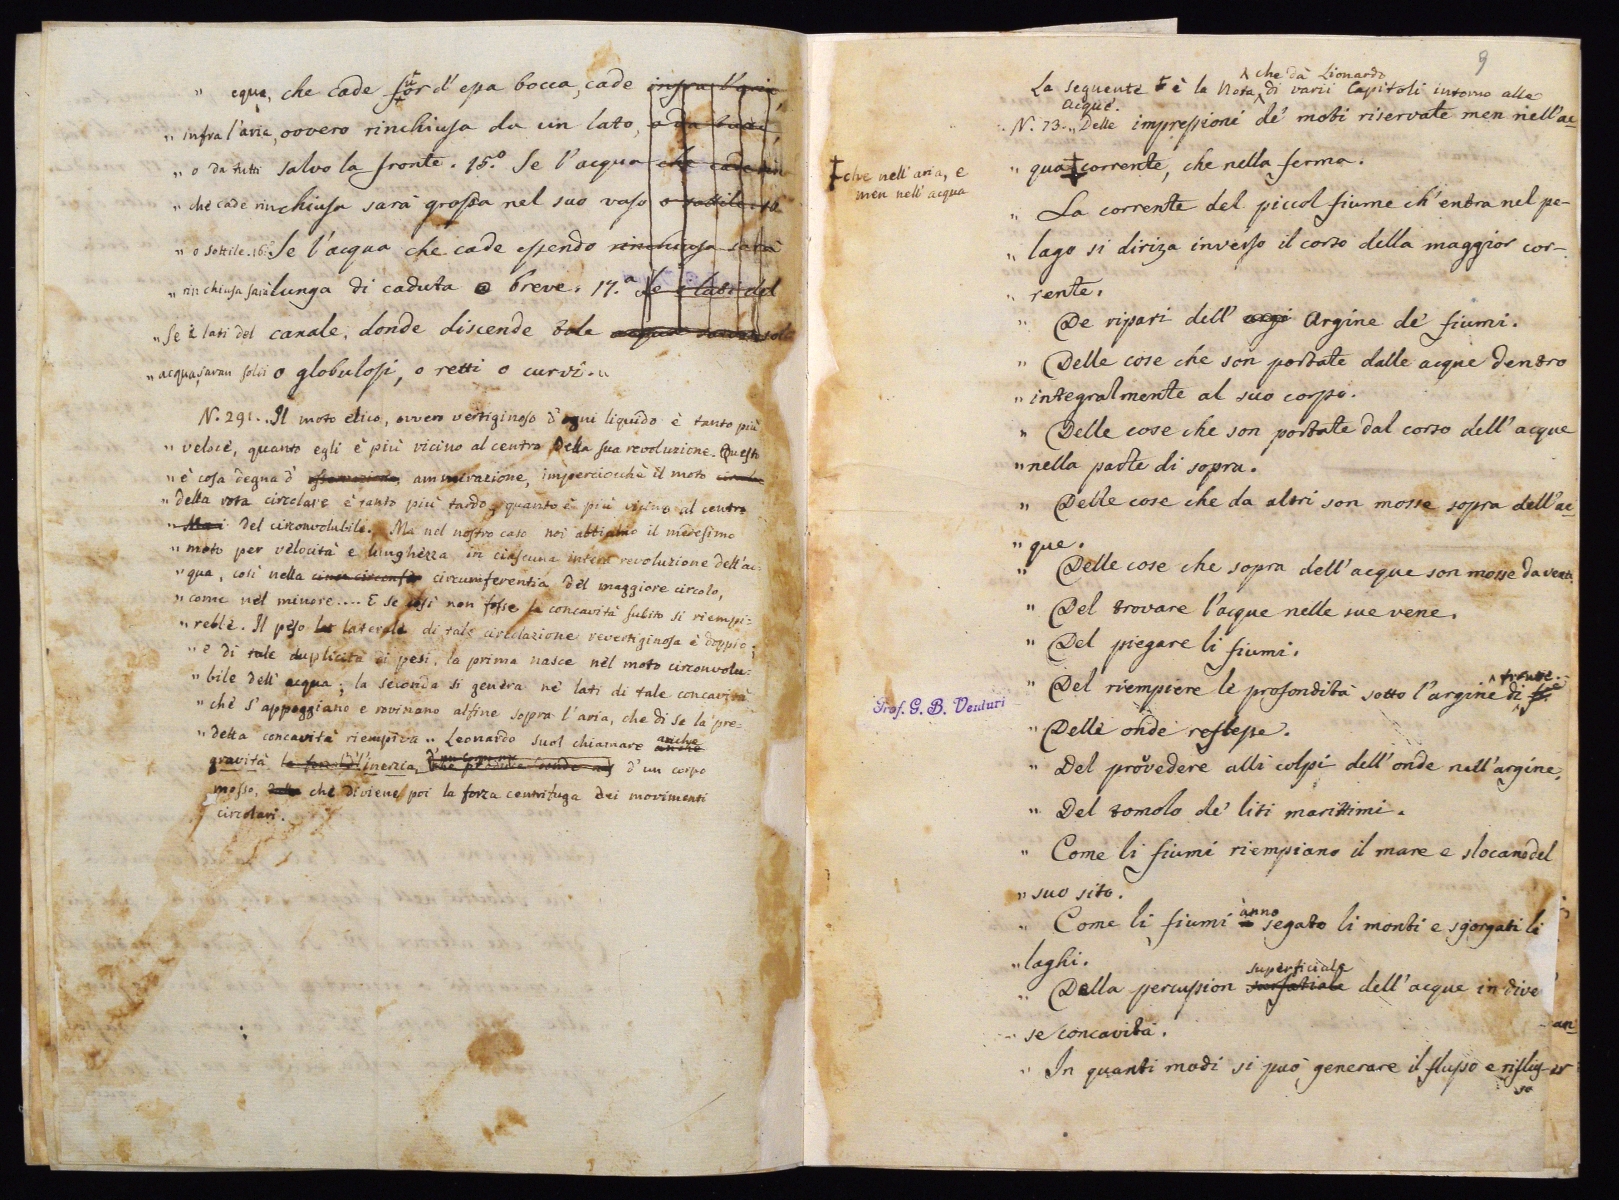 " equa, che cade fuor d'essa bocca, cade infra l'aria
" infra l'aria, ovvero rinchiusa da un lato, o da tutti,
" o da tutti salvo la fronte. 15.º Se l'acqua che cade rin
" che cade rinchiusa sarà grossa nel suo vaso o sottile. 16
" o sottile. 16.º Se l'acqua che cade essendo rinchiusa sarà
" rinchiusa sarà lunga di caduta o breve. 17.ª Se i lati del
" Se i lati del canale, donde discende tale acqua saran soli
" acqua, saran soli o globulosi, o retti o curvi."
N. 291. "Il moto elico, ovvero vertiginoso d'ogni liquido è tanto più
" veloce, quanto egli è più vicino al centro della sua revoluzione. Questo
" è cosa degna d' ammirazione, imperciocchè il moto circolar
" della rota circolare è tanto più tardo, quanto è più vicino al centro
" Ma i del circonvolubile. Ma nel nostro caso noi abbiamo il medesimo
" moto per velocità e lunghezza in ciascuna intera revoluzione dell'ac-
" qua, così nella circumferentia del maggiore circolo,
" come nel minore.... E se così non fosse la concavità subito si riempi-
" rebbe. Il peso laterale di tale circolazione revertiginosa è doppio;
" e di tale duplicità di pesi, la prima nasce nel moto circonvolu-
" bile dell' acqua; la seconda si genera ne' lati di tale concavità
" che s'appoggiano e rovinano alfine sopra l'aria, che di se la pre-
" detta concavità riempiva". Leonardo suol chiamare anche
gravità la forza d'inerzia, d'un corpo
mosso, che diviene poi la forza centrifuga dei movimenti
circolari.
9
La seguente è la Nota che dà Lionardo di varii Capitoli intorno alle
acque.
N. 73. "Delle impressioni de' mobi riservate men nell'ac-
" qua corrente, che nella ferma.
che nell'aria, e
men nell'acqua
" La corrente del piccol fiume ch' entra nel pe-
" lago si diriza inverso il corso della maggior cor-
" rente.
" De ripari dell' argi Argine de' fiumi.
" Delle cose che son portate dalle acque dentro
" integralmente al suo corpo.
" Delle cose che son portate dal corso dell' acque
" nella parte di sopra.
" Delle cose che da altri son mosse sopra dell'ac-
" que.
" Delle cose che sopra dell'acque son mosse da venti.
" Del trovare l'acque nelle sue vene.
" Del piegare li fiumi.
" Del riempiere le profondità sotto l'argine di
Prof. G. B. Venturi
" Delle onde reflesse.
" Del provedere alli colpi dell'onde nell'argine.
" Del tomolo de' liti marittimi.
" Come li fiumi riempiano il mare e slocano del
" suo sito.
" Come li fiumi ànno segato li monti e sgorgati li
" laghi.
" Della percussion superficiale dell' acque in dive
se concavità.
" In quanti modi si può generare il flusso e riflus
so